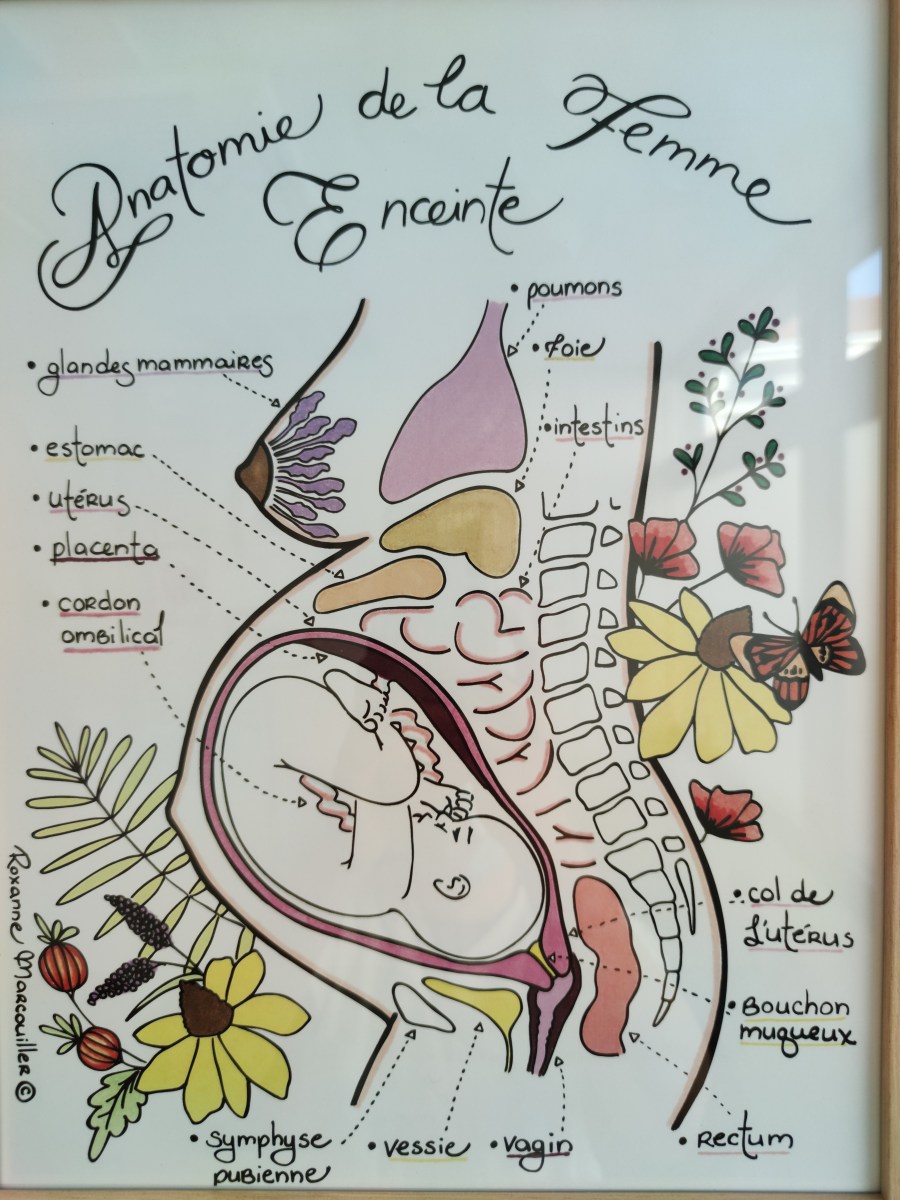 Anatomie de la Femme
Enceinte
• poumons
• Foie
• intestins
• glandes mammaires
• estomac
• utérus
• placenta
• cordon
ombilical
• col de
l'utérus
• Bouchon
muqueux
• rectum
• vagin
• vessie
• symphyse
pubienne
Roxanne Marcouiller ©